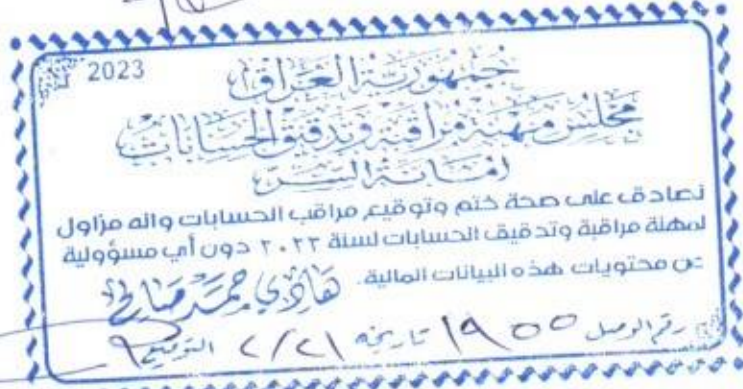 2023
جمهورية العراق
مجلس مهنة مراقبة وتدقيق الحسابات
أمانة السر
نصادق على صحة ختم وتوقيع مراقب الحسابات وانه مزاول
لمهنة مراقبة وتدقيق الحسابات لسنة ٢٠٢٣ دون أي مسؤولية
عن محتويات هذه البيانات المالية.
هادي حمد صالح
رقم الوصل ١٩٥٥ تاريخه ٢/٢١ التوقيع